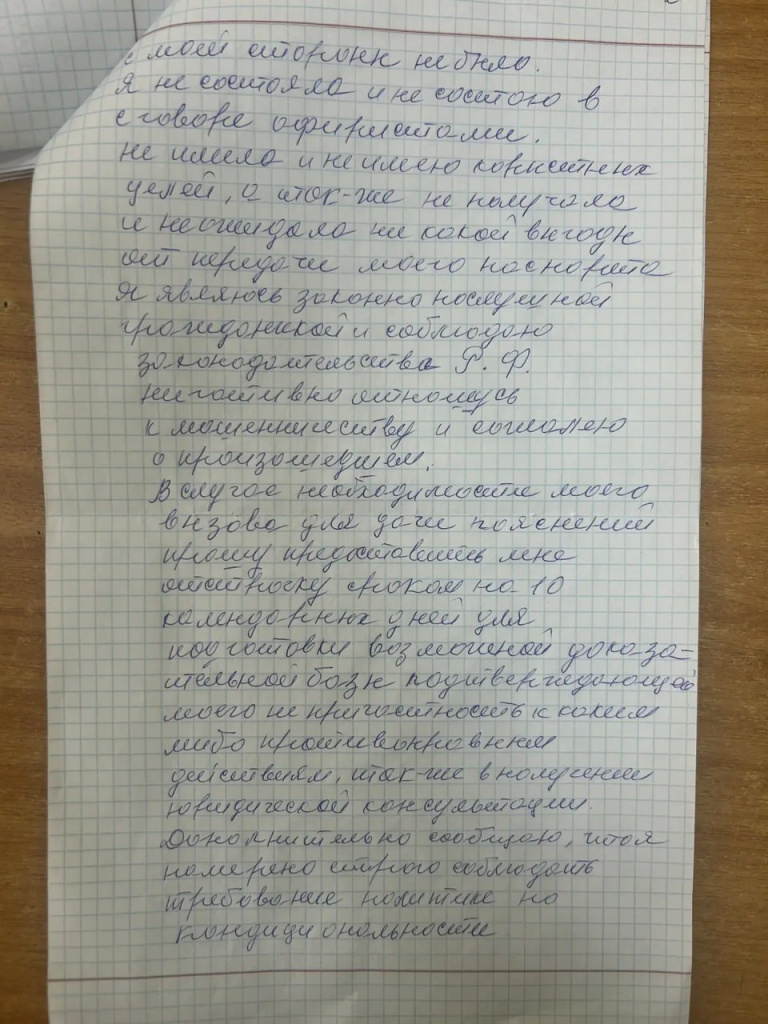 с моей стороны не было.
я не состояла и не состою в
сговоре аферистами.
не имела и не имею корыстных
целей, а так-же не получала
и не ожидала ни какой выгоды
от передачи моего паспорта
я являюсь законно послушной
гражданкой и соблюдаю
законодательства Р.Ф.
нигативно отношусь
к мошенничеству и сожалею
о произошедшем.
В случае необходимости моего
вызова для дачи пояснений
прошу предоставить мне
отсрочку сроком на 10
календарных дней для
подготовки возможной доказа-
тельной базы подтверждающей
моего не причастность к каким
либо противоправным
действиям, так-же в получении
юридической консультации.
Дополнительно сообщаю, что я
намерена строго соблюдать
требование политике по
кондициональности